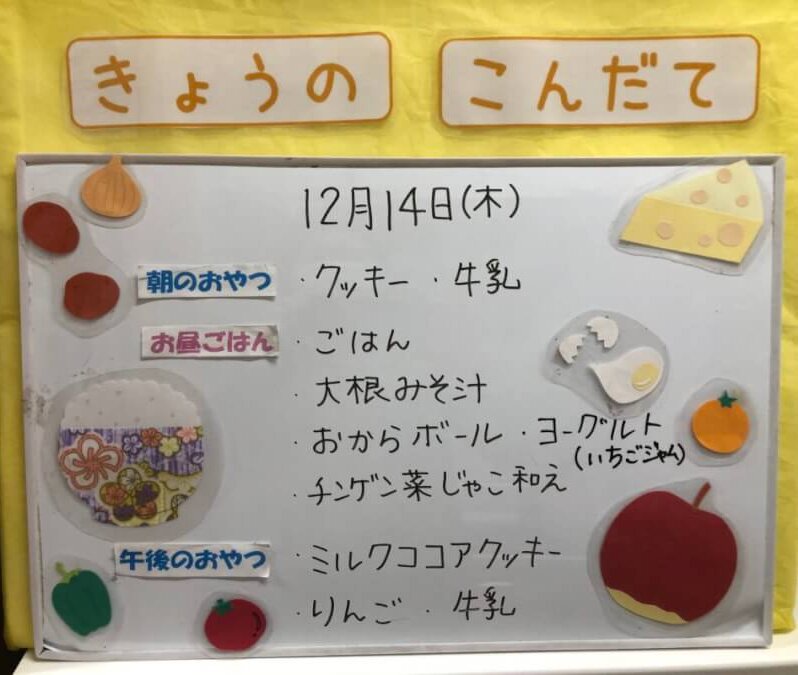 きょうの こんだて
12月14日(木)
朝のおやつ ・クッキー ・牛乳
お昼ごはん ・ごはん
・大根みそ汁
・おからボール ・ヨーグルト
(いちごジャム)
・チンゲン菜じゃこ和え
午後のおやつ ・ミルクココアクッキー
・りんご ・牛乳